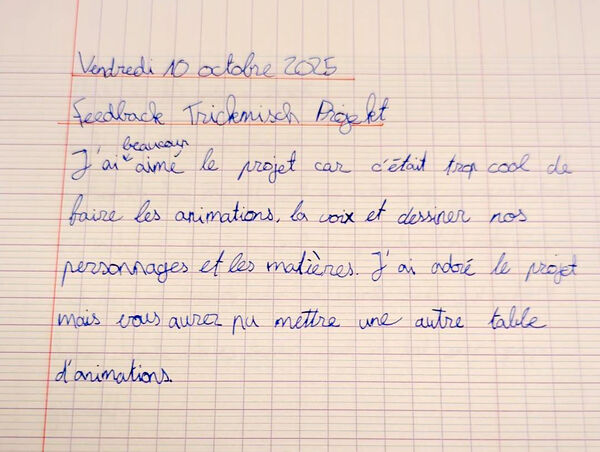 Vendredi 10 octobre 2025
Feedback Trickmisch Projekt
J'ai beaucoup aimé le projet car c'était trop cool de
faire les animations, la voix et dessiner nos
personnages et les matières. J'ai adoré le projet
mais vous aurez pu mettre une autre table
d'animations.